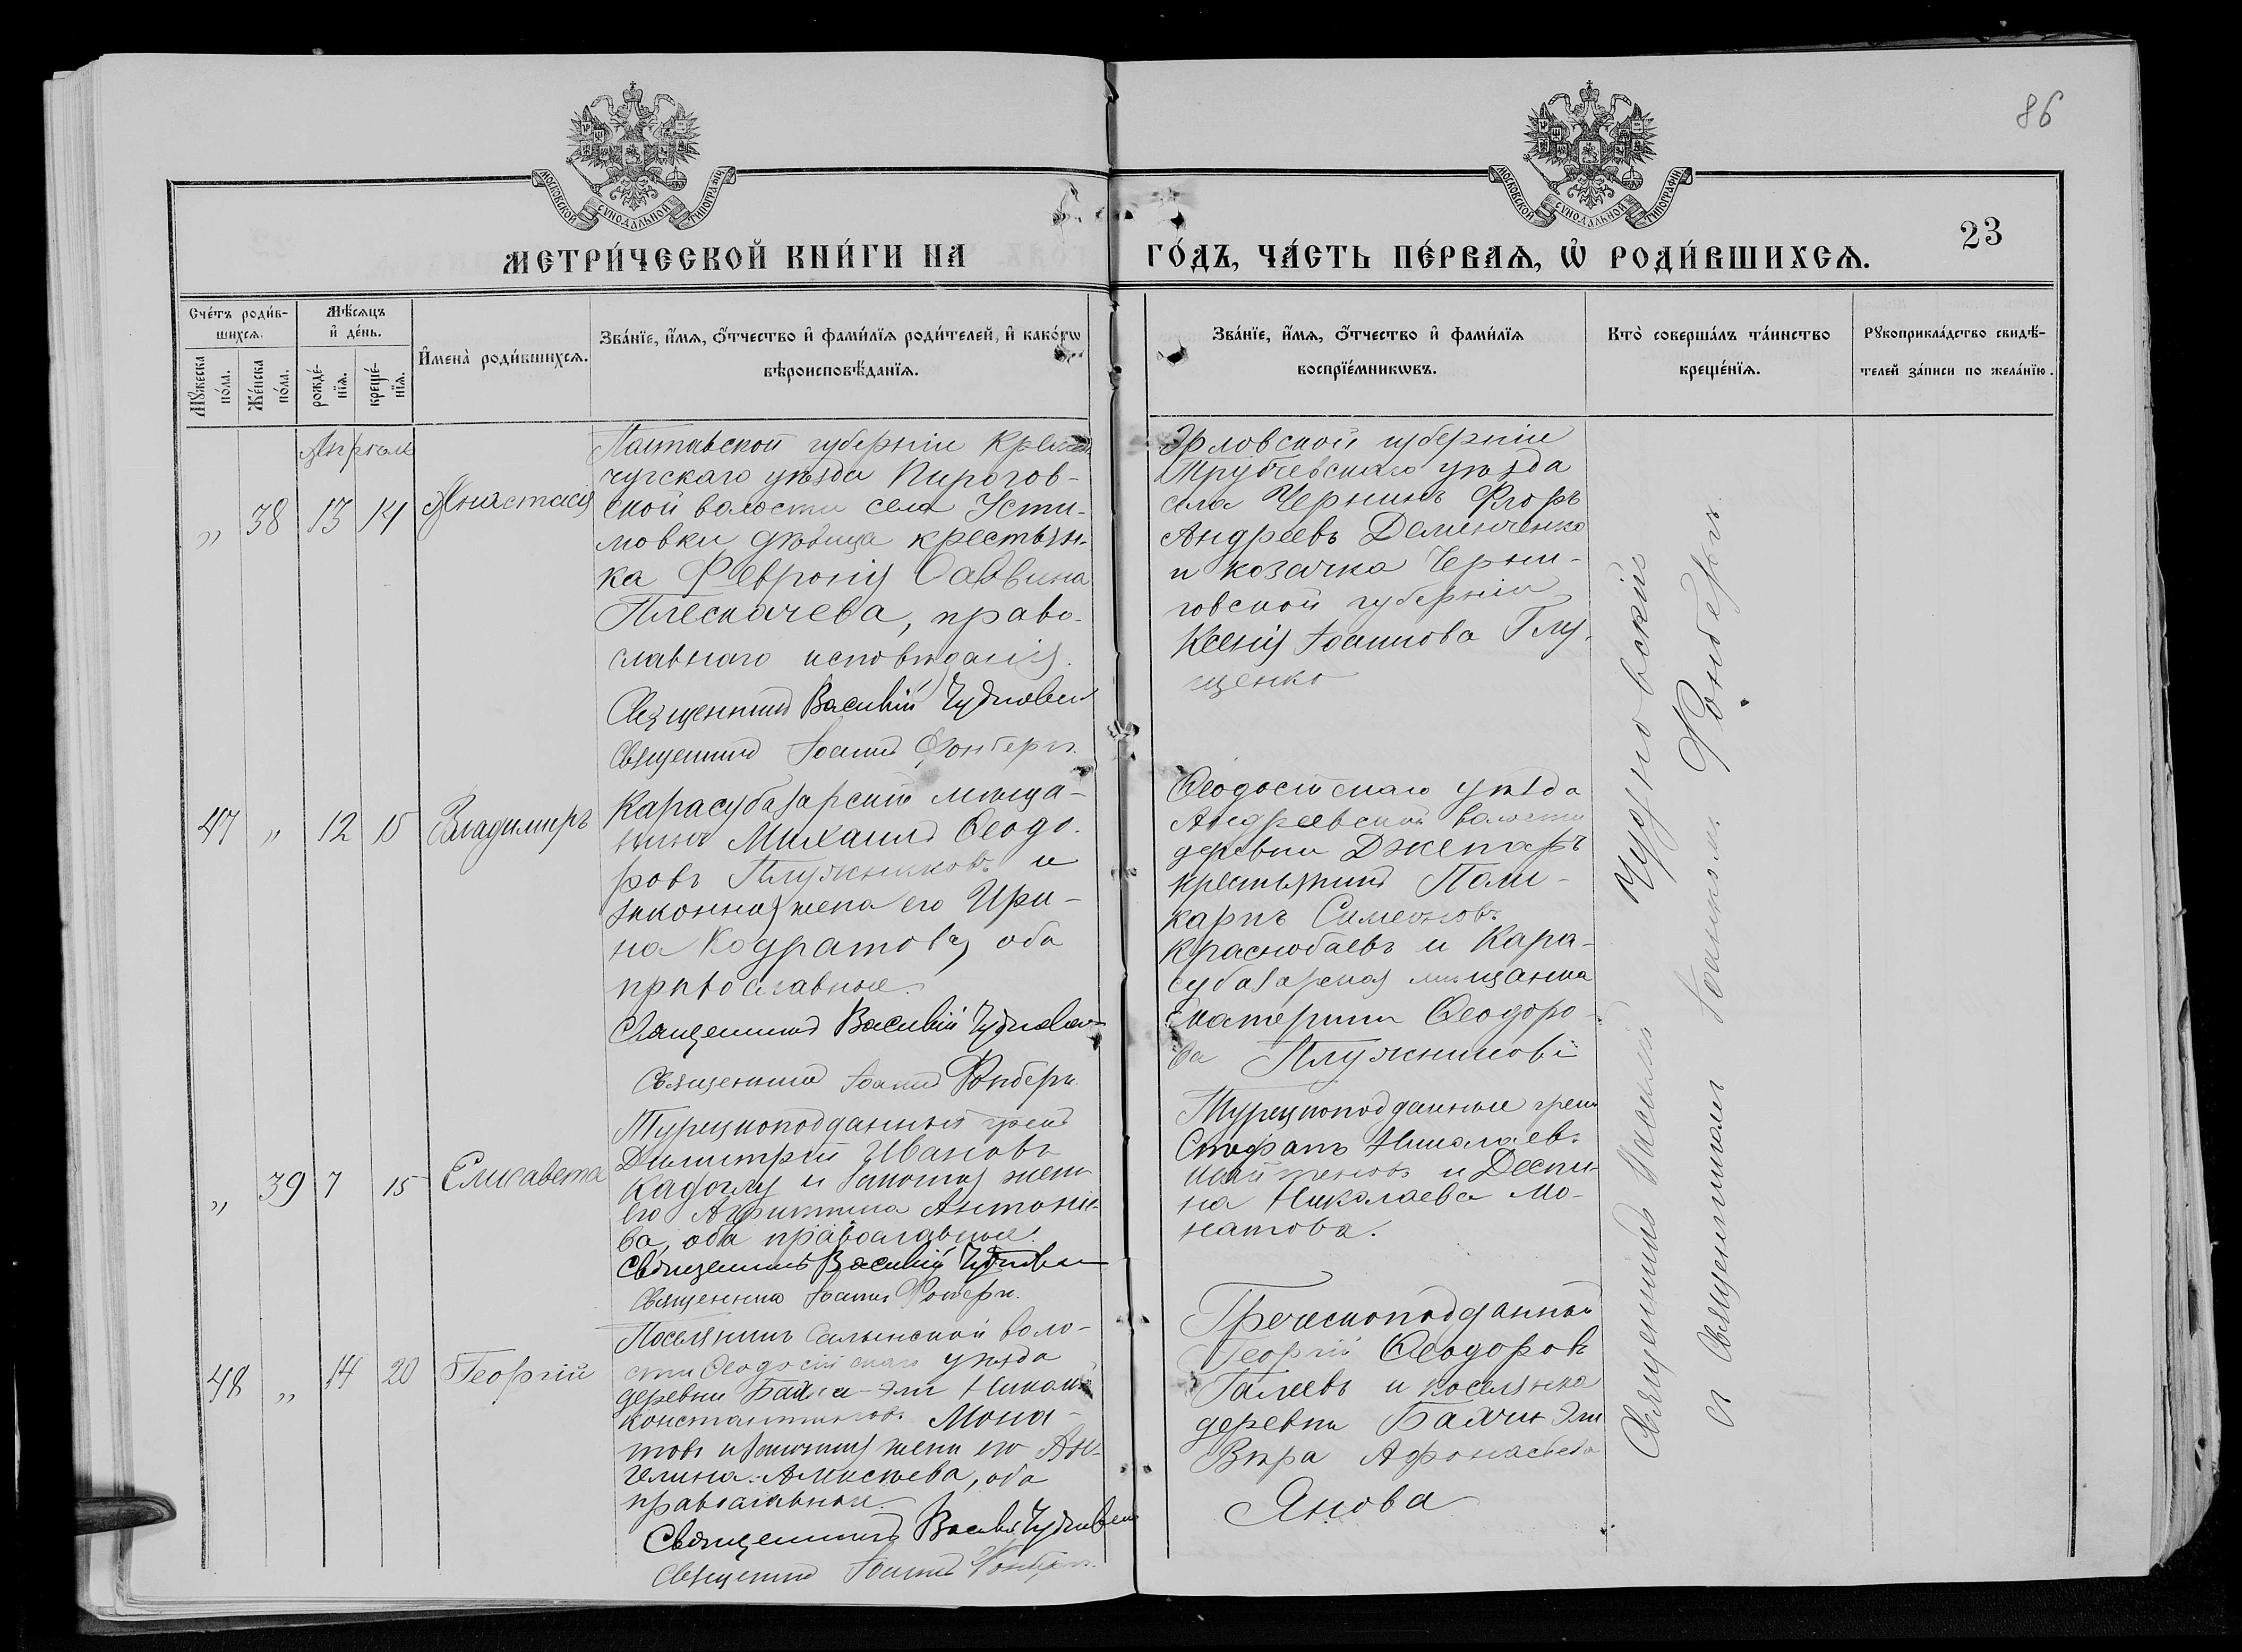 86
МОСКОВСКОЙ СУНОДАЛЬНОЙ ТИПОГРАФІИ
МОСКОВСКОЙ СУНОДАЛЬНОЙ ТИПОГРАФІИ
23
МЕТРИ́ЧЕСКОЙ КНИ́ГИ НА
ГО́ДЪ, ЧА́СТЬ ПЕ́РВАѦ, Ѽ РОДИ́ВШИХСѦ.
Сче́тъ роди́в-
шихсѧ.
Мꙋжеска по́ла.
Же́нска по́ла.
Мѣ́сѧцъ
и҆ де́нь.
рожде́-
нїѧ.
креще́-
нїѧ.
И҆мена̀ роди́вшихсѧ.
Зва́нїе, и҆́мѧ, ѻ҆́тчество и҆ фами́лїѧ роди́телей, и҆ како́гѡ
вѣроисповѣ́данїѧ.
Зва́нїе, и҆́мѧ, ѻ҆́тчество и҆ фами́лїѧ
воспрїе́мникѡвъ.
Кто̀ соверша́лъ та́инство
креще́нїѧ.
Рꙋкоприкла́дство свидѣ́-
телей за́писи по жела́нїю.
Апрѣль
„ 38 13 14 Анастасія
Полтавской губерніи Кремен
чугскаго уѣзда Пирогов-
ской волости села Усти-
мовки дѣвица крестьян-
ка Февронія Саввина
Плескачева, право-
славнаго исповѣданія.
Священникъ Василій Чудновскій
Священникъ Іоаннъ Фонберг
Орловской губерніи
Трубчевскаго уѣзда
села
Андреевъ Деминченко
и козачка Черни-
говской губерніи
Ксенія Іоаннова Глу-
щенко
47 „ 12 15 Владимиръ
Карасубазарскій мѣща-
нинъ Михаилъ Ѳеодо-
ровъ Плужниковъ и
законная жена его Ири-
на Кодратова, оба
православные.
Священникъ Василій Чудновскій
Священникъ Іоаннъ Фонберг
Ѳеодосійскаго уѣзда
Андреевской волости
деревни
крестьянинъ Поли-
карпъ Симеоновъ
Краснобаевъ и Кара-
субазарская мѣщанка
Екатерина Ѳеодоро-
ва Плужникова
„ 39 7 15 Елисавета
Турецкоподданный грекъ
Димитрій Ивановъ
Кадоглу и законная жена
его Антоніе-
ва, оба православные.
Священникъ Василій Чудновскій
Священникъ Іоаннъ Фонберг.
Турецкоподданные греки
Стефанъ Николаевъ
и Деспи-
на Николаева Мо-
натова.
48 „ 14 20 Георгій
Поселянинъ Салынской воло-
сти Ѳеодосійскаго уѣзда
деревни Николай
Константиновъ Мона-
товъ и законная жена его Ан-
гелина Алексѣева, оба
православные.
Священникъ Василій Чудновскій
Священникъ Іоаннъ Фонберг.
Греческоподданный
Георгій Ѳеодоровъ
Галеевъ и поселянка
деревни
Вѣра Афонасьева
Янова
Священникъ Василій Чудновскій
съ Священникомъ Іоанномъ Фонбергъ